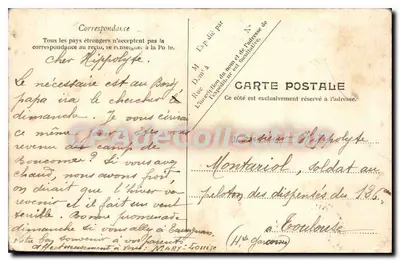 Correspondance
Tous les pays étrangers n'acceptent pas la
correspondance au recto, se renseigner à la Poste.
cher Hippolyte.
Le nécessaire est au Bord
papa ira le chercher
dimanche. Je vous écrirai
ce même
revenu du camp de
? Si vous avez
chaud, nous avons froid
on dirait que l'hiver va
revenir et il fait un vent
terrible. Bonne promenade
dimanche si vous allez à
bon souvenir à vos parents.
affectueusement à vous: Mary-Louise
M
Expédié par
Dem.t à
Rue
N°
L'inscription du nom et de l'adresse de
l'expéditeur est facultative.
CARTE POSTALE
Ce côté est exclusivement réservé à l'adresse.
Monsieur Hippolyte
Montariol, soldat au
peloton des dispensés du 136
à Toulouse
(Hte Garonne)